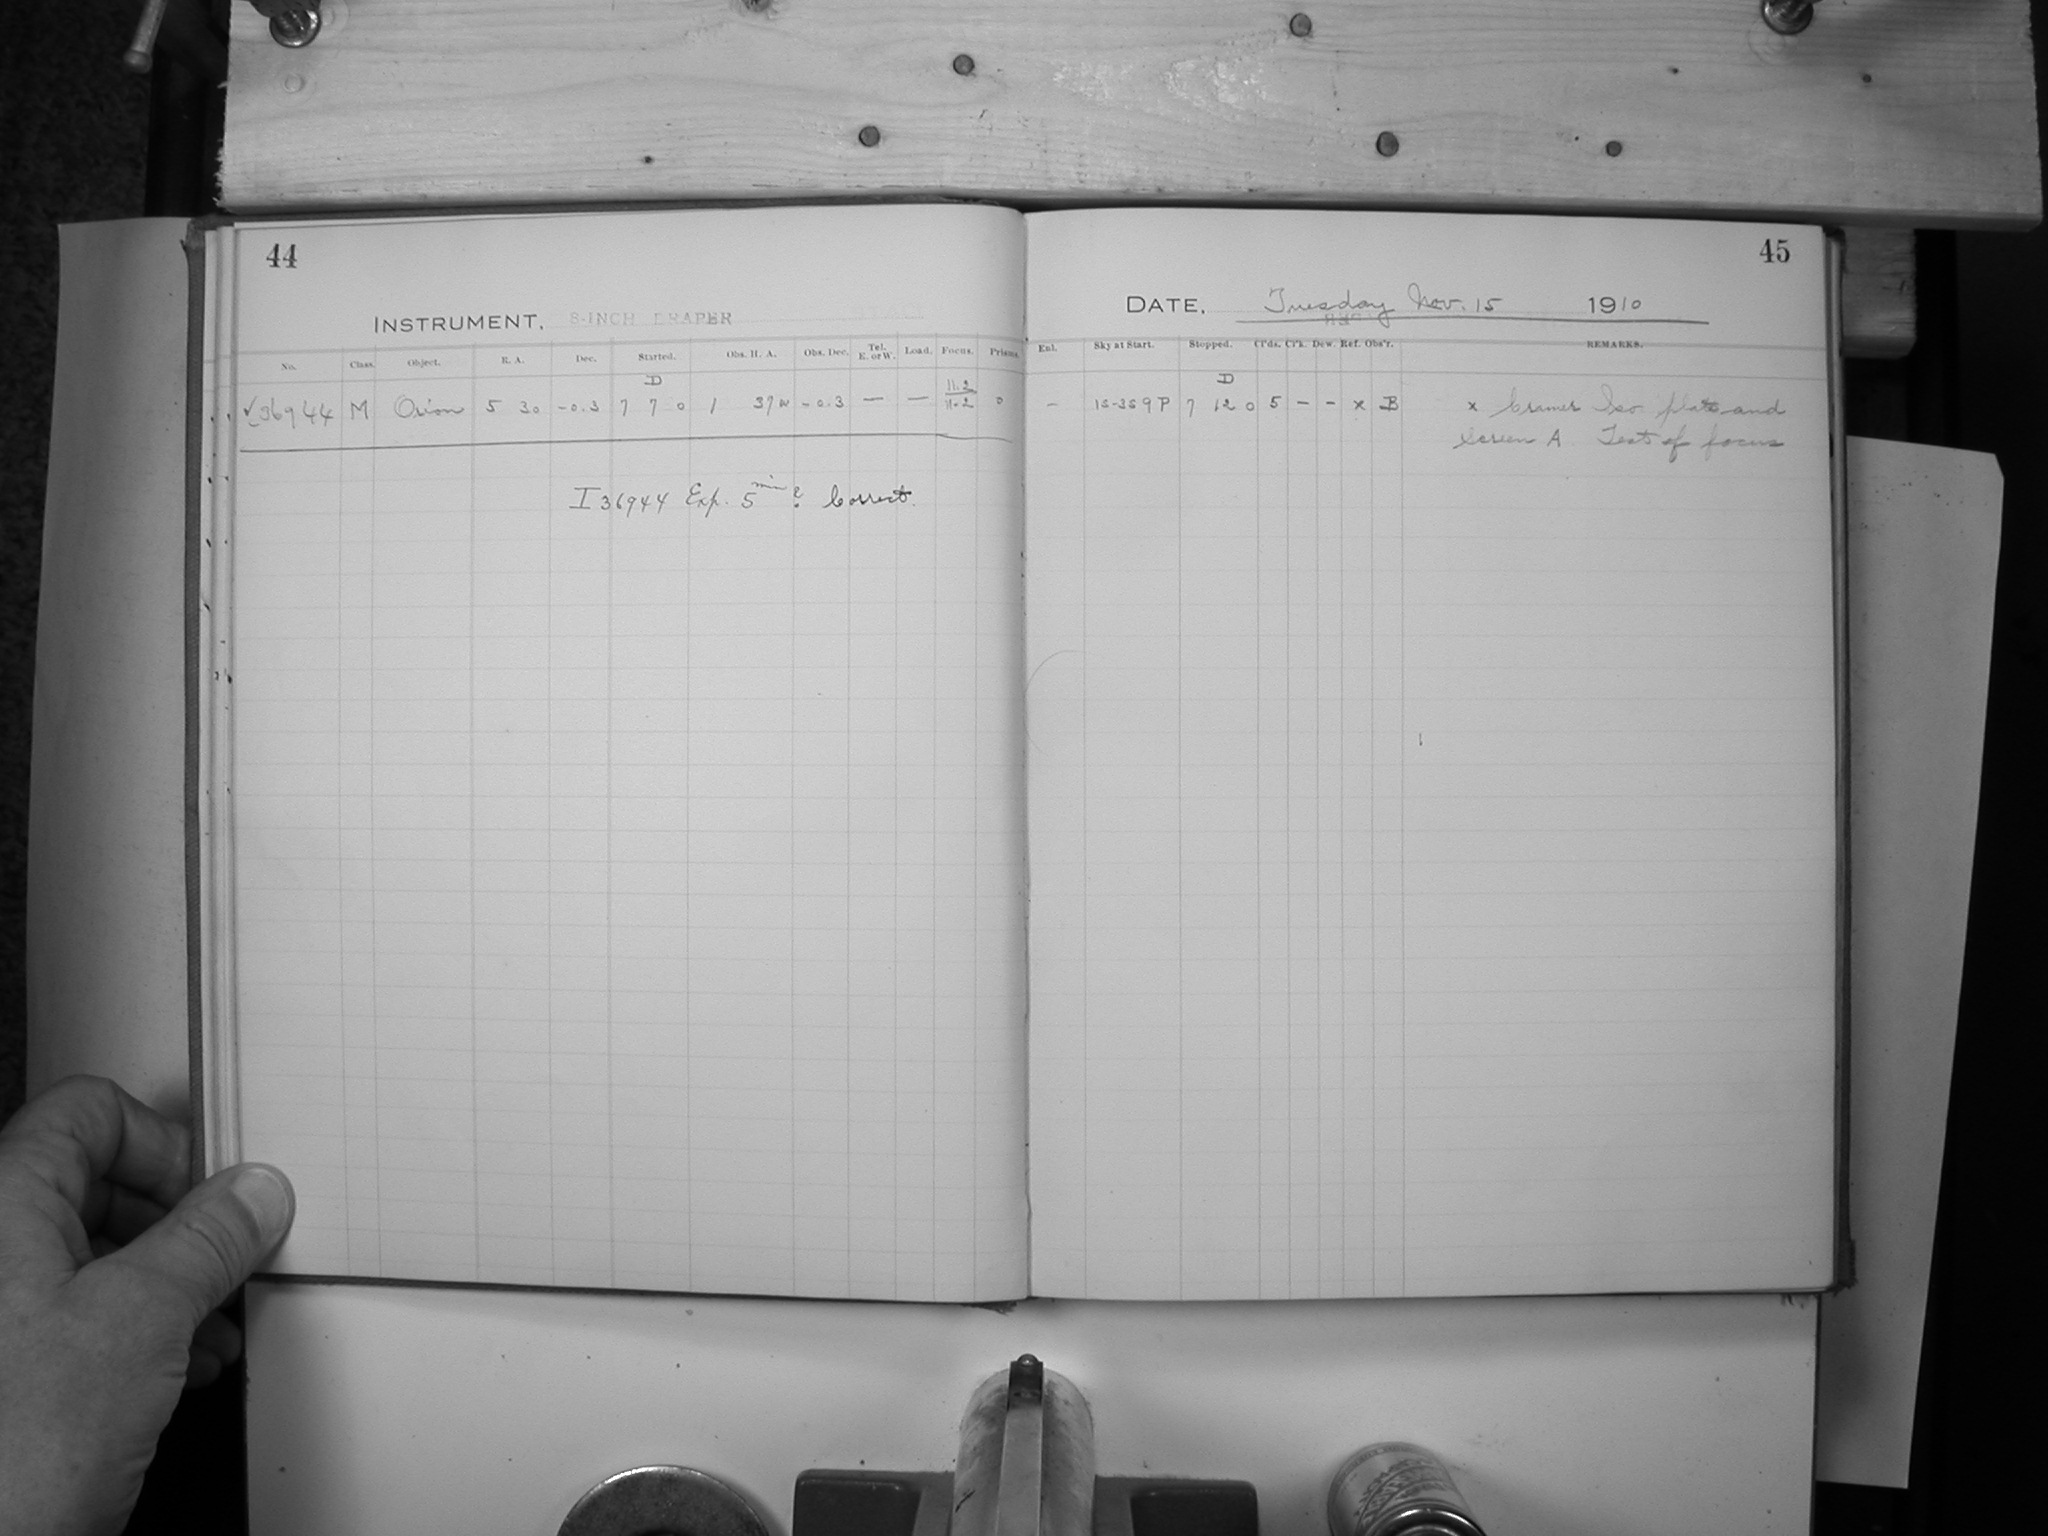 44
INSTRUMENT, 8-INCH DRAPER
No. Class. Object. R. A. Dec. Started. Obs. H. A. Obs. Dec. Tel. E. or W. Load. Focus. Prisms.
D 11.2
✓36944 M Orion 5 30 -0.3 7 7 0 1 37w -0.3 — — 11.2 0
I 36944 Exp. 5 min? Correct.
45
DATE, Tuesday Nov. 15 1910
Enl. Sky at Start. Stopped. Cl'ds. Cl'k. Dew. Ref. Obs'r. REMARKS.
D
- 1S-3S9P 7 12 0 5 - - x B x Cramer Iso plate and
Screen A Test of focus